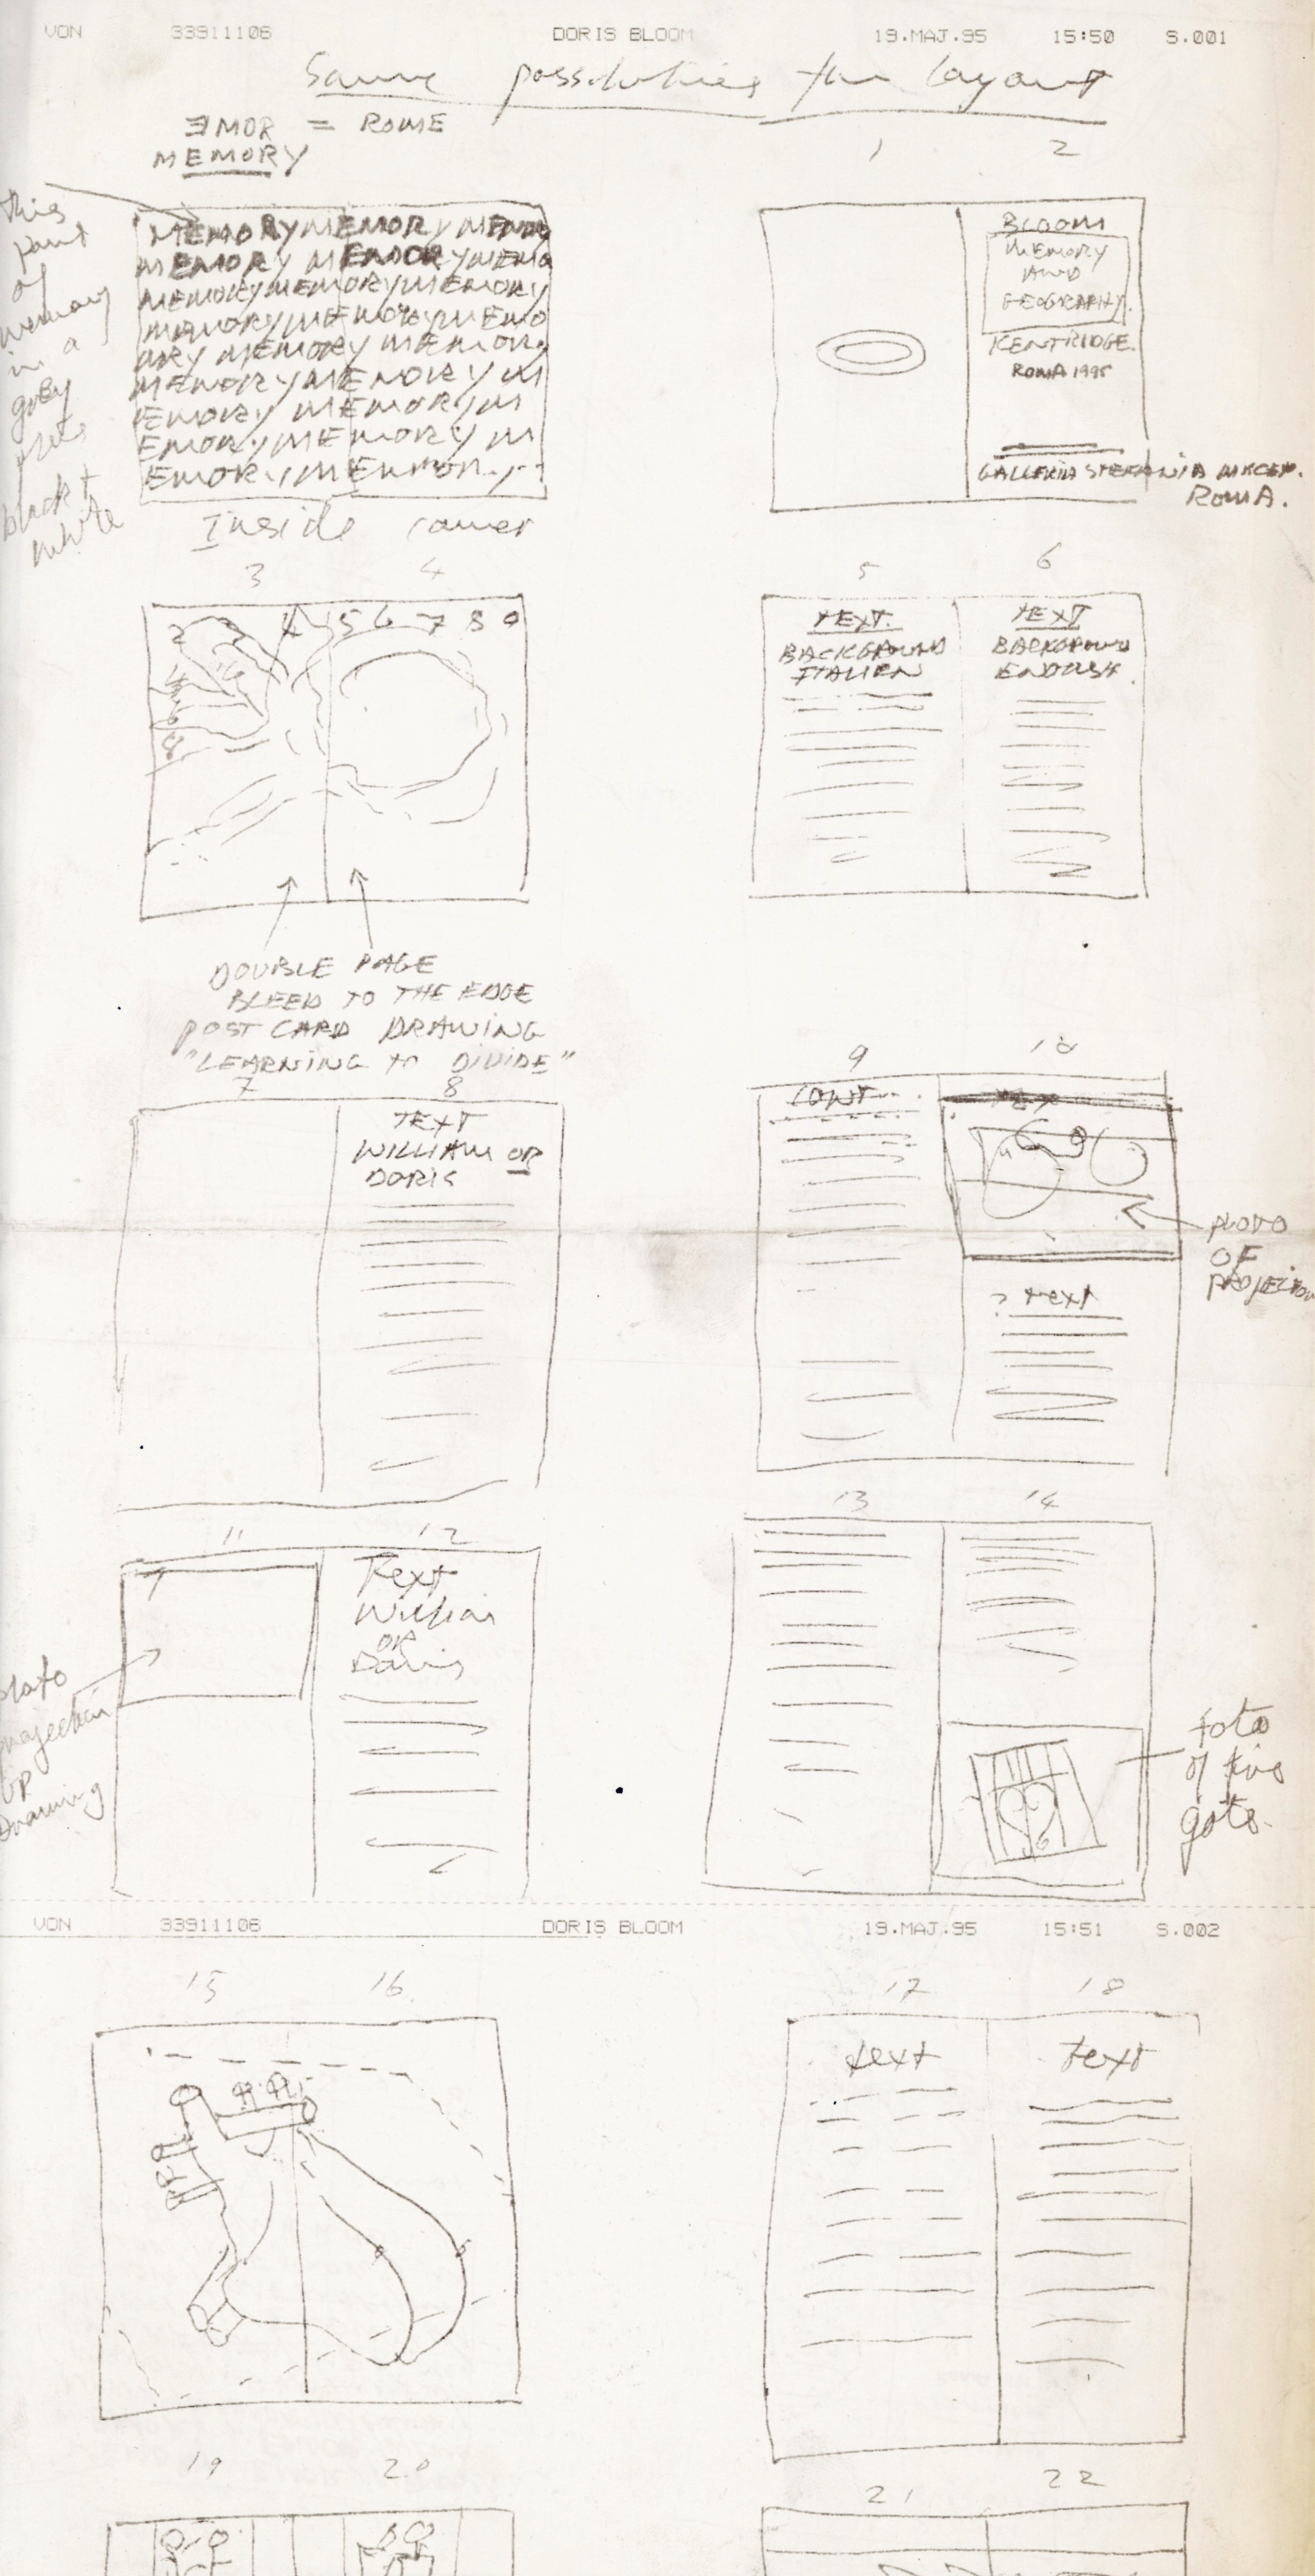 VON 33911106 DORIS BLOOM 19.MAJ.95 15:50 S.001
Some possibilities for layout
ƎMOR = ROME
MEMORY
this
part
of
memory
in a
grey
black +
white
MEMORYMEMORYMEMO
MEMORY MEMORYMEMO
MEMORYMEMORYMEMORY
MEMORYMEMORYMEMO
ORY MEMORY MEMORY
MEMORYMEMORYM
EMORYMEMORYM
EMORYMEMORYM
EMORYMEMORY
Inside cover
1 2
BLOOM
MEMORY
AND
GEOGRAPHY
KENTRIDGE.
ROMA 1995
GALLERIA STEFANIA MISCET.
ROMA.
3 4
2 3 4 5 6 7 8 0
DOUBLE PAGE
BLEED TO THE EDGE
POST CARD DRAWING
"LEARNING TO DIVIDE"
5 6
TEXT.
BACKGROUND
ITALIEN
TEXT
BACKGROUND
ENGLISH.
7 8
TEXT
WILLIAM OR
DORIS
9 10
CONT
PHOTO
OF
PROJECTION
? text
11 12
Text
William
OR
Doris
projection
OR
Drawing
13 14
foto
of fire
gate.
VON 33911106 DORIS BLOOM 19.MAJ.95 15:51 S.002
15 16
17 18
text text
19 20
21 22